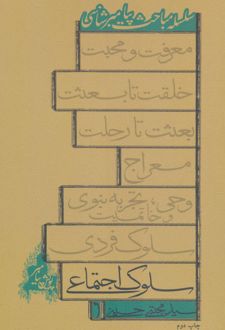 سلسله مباحث پیامبرشناسی
معرفت و محبت
خلقت تا بعثت
بعثت تا رحلت
معراج
وحی، تجربه نبوی
و خاتمیت
سلوک فردی
سلوک اجتماعی
۶
سید مجتبی حسینی
چاپ دوم